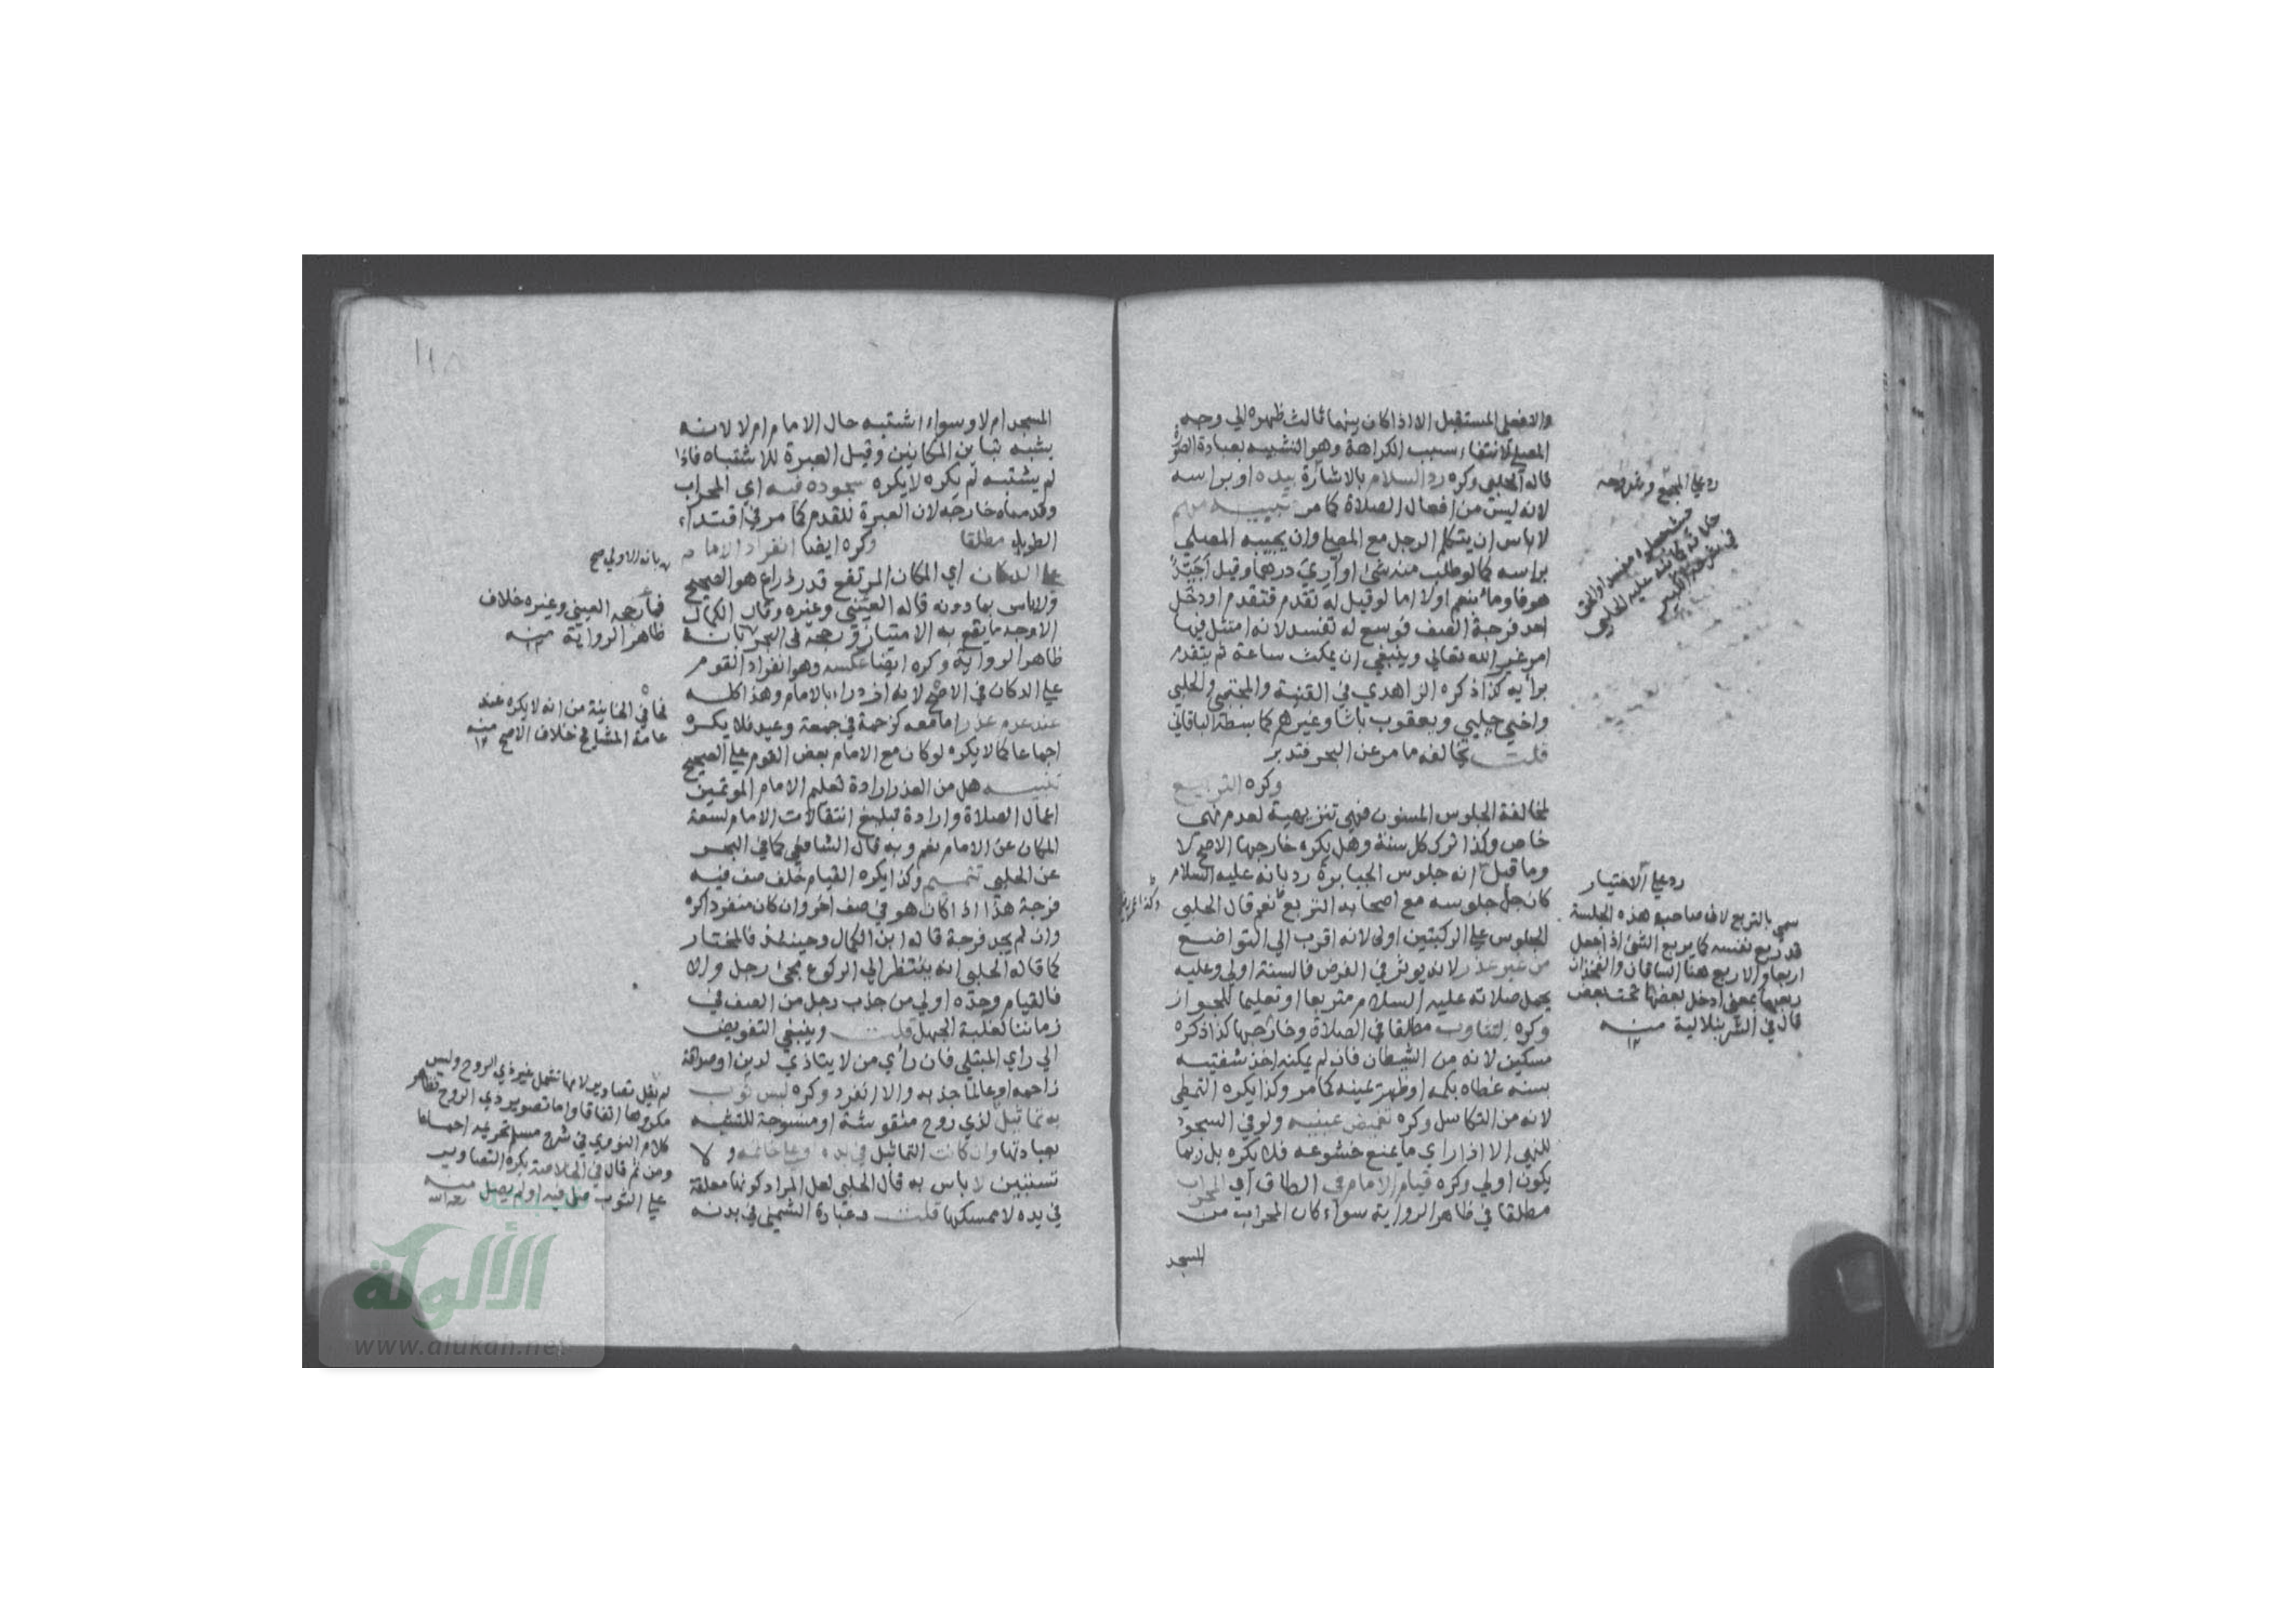 والا فعلى المستقبل الا اذا كان بينهما ثالث ظهره الى وجه
المصلى لانتفاء سبب الكراهة وهو التشبيه بعبادة الصورة
قاله الحلبي وكره رد السلام بالاشارة بيده او براسه
لانه ليس من افعال الصلاة كما مر تنبيه مهم
لاباس ان يتكلم الرجل مع المصلي وان يجيبه المصلي
براسه كما لو طلب منه شئ او اري درهما وقيل اجيد
هو فاوما بنعم اولا اما لو قيل له تقدم فتقدم او دخل
احد فرجة الصف فوسع له تفسد لانه امتثل فيها
امر غير الله تعالى وينبغي ان يمكث ساعة ثم يتقدم
برأيه كذا ذكره الزاهدي في القنية والمجتبى والحلبي
واخي جلبي ويعقوب باشا وغيرهم كما بسطه الباقاني
قلت يخالفه ما مر عن البحر فتدبر
وكره التربيع
لمخالفة الجلوس المسنون فهي تنزيهية لعدم نهى
خاص وكذا ترك كل سنة وهل يكره خارجها الاصح لا
وما قيل انه جلوس الجبابرة رد بانه عليه السلام
كان جل جلوسه مع اصحابه التربع نعم قال الحلبي
الجلوس على الركبتين اولى لانه اقرب الى التواضع
من غير عذر لانه يوثر في الفرض فالسنة اولى وعليه
يحمل صلاته عليه السلام متربعا او تعليما للجواز
وكره التثاوب مطلقا في الصلاة وخارجها كذا ذكره
مسكين لانه من الشيطان فان لم يمكنه اخذ شفتيه
بسنه غطاه بكمه او ظهر عينه كما مر وكذا يكره التمطي
لانه من التكاسل وكره تغميض عينيه ولو في السجود
للنهي الا اذا راى ما يمنع خشوعه فلا يكره بل ربما
يكون اولى وكره قيام الامام في الطاق اي المحراب
مطلقا في ظاهر الرواية سواء كان المحراب من
المسجد
رد على المجمع وشروحه
في شرحه الكبير
رد على الاختيار
سمي بالتربع لان صاحب هذه الجلسة
قد ربع نفسه كما يربع الشئ اذا جعل
اربعا والاربع هنا الساقان والفخذان
ربعها بمعنى ادخل بعضها تحت بعض
قال في الشرنبلالية منه
١٢
١١٨
المسجد ام لا وسواء اشتبه حال الامام ام لا لانه
يشبه تباين المكانين وقيل العبرة للاشتباه فاذا
لم يشتبه لم يكره لا يكره سجوده فيه اي المحراب
وقدماه خارجه لان العبرة للقدم كما مر في اقتداء
الطويل مطلقا وكره ايضا انفراد الامام
على الدكان اي المكان المرتفع قدر ذراع هو الصحيح
ولاباس بما دونه قاله العيني وغيره وقال الكمال
الاوجه ما يقع به الامتياز ورجحه في البحر بانه
ظاهر الرواية وكره ايضا عكسه وهو انفراد القوم
على الدكان في الاصح لانه ازدراء بالامام وهذا كله
عند عدم عذر اما معه كزحمة في جمعة وعيد فلا يكره
اجماعا كما لا يكره لو كان مع الامام بعض القوم على الصحيح
تنبيه هل من العذر ارادة تعليم الامام الموتمين
اعمال الصلاة وارادة تبليغ انتقالات الامام لسعة
المكان عن الامام نعم وبه قال الشافعي كما في البحر
عن الحلبي تتميم وكذا يكره القيام خلف صف فيه
فرجة هذا اذا كان هو في صف اخر وان كان منفردا كره
وان لم يجد فرجة قاله ابن الكمال وحينئذ فالمختار
كما قاله الحلبي انه ينتظر الى الركوع مجئ رجل والا
فالقيام وحده اولى من جذب رجل من الصف في
زماننا لغلبة الجهل قلت وينبغي التفويض
الى راي المبتلى فان راى من لا يتاذى لدين او صداقة
زاحمه او عالما جذبه والا انفرد وكره لبس ثوب
به تماثيل لذي روح منقوشة او منسوجة للتشبه
بعبادتها وان كانت التماثيل في يده او على خاتمه ولا
تستبين لاباس به قال الحلبي لعل المراد كونها معلقة
في يده لا ممسكها قلت وعبارة الشمني في بدنه
بانه الاولى صح
فما رجحه العيني وغيره خلاف
ظاهر الرواية منه
١٢
فما في الخانية من انه لا يكره عند
عامة المشايخ خلاف الاصح منه ١٢
لم يقل تصاوير لانها تشمل غير ذي الروح وليس
مكروها اتفاقا واما تصوير ذي الروح فظاهر
كلام النووي في شرح مسلم تحريمه اجماعا
ومن ثم قال في الخلاصة يكره التصاوير
على الثوب صلى فيه او لم يصل منه
رحمه الله
شبكة
الألوكة
www.alukah.net